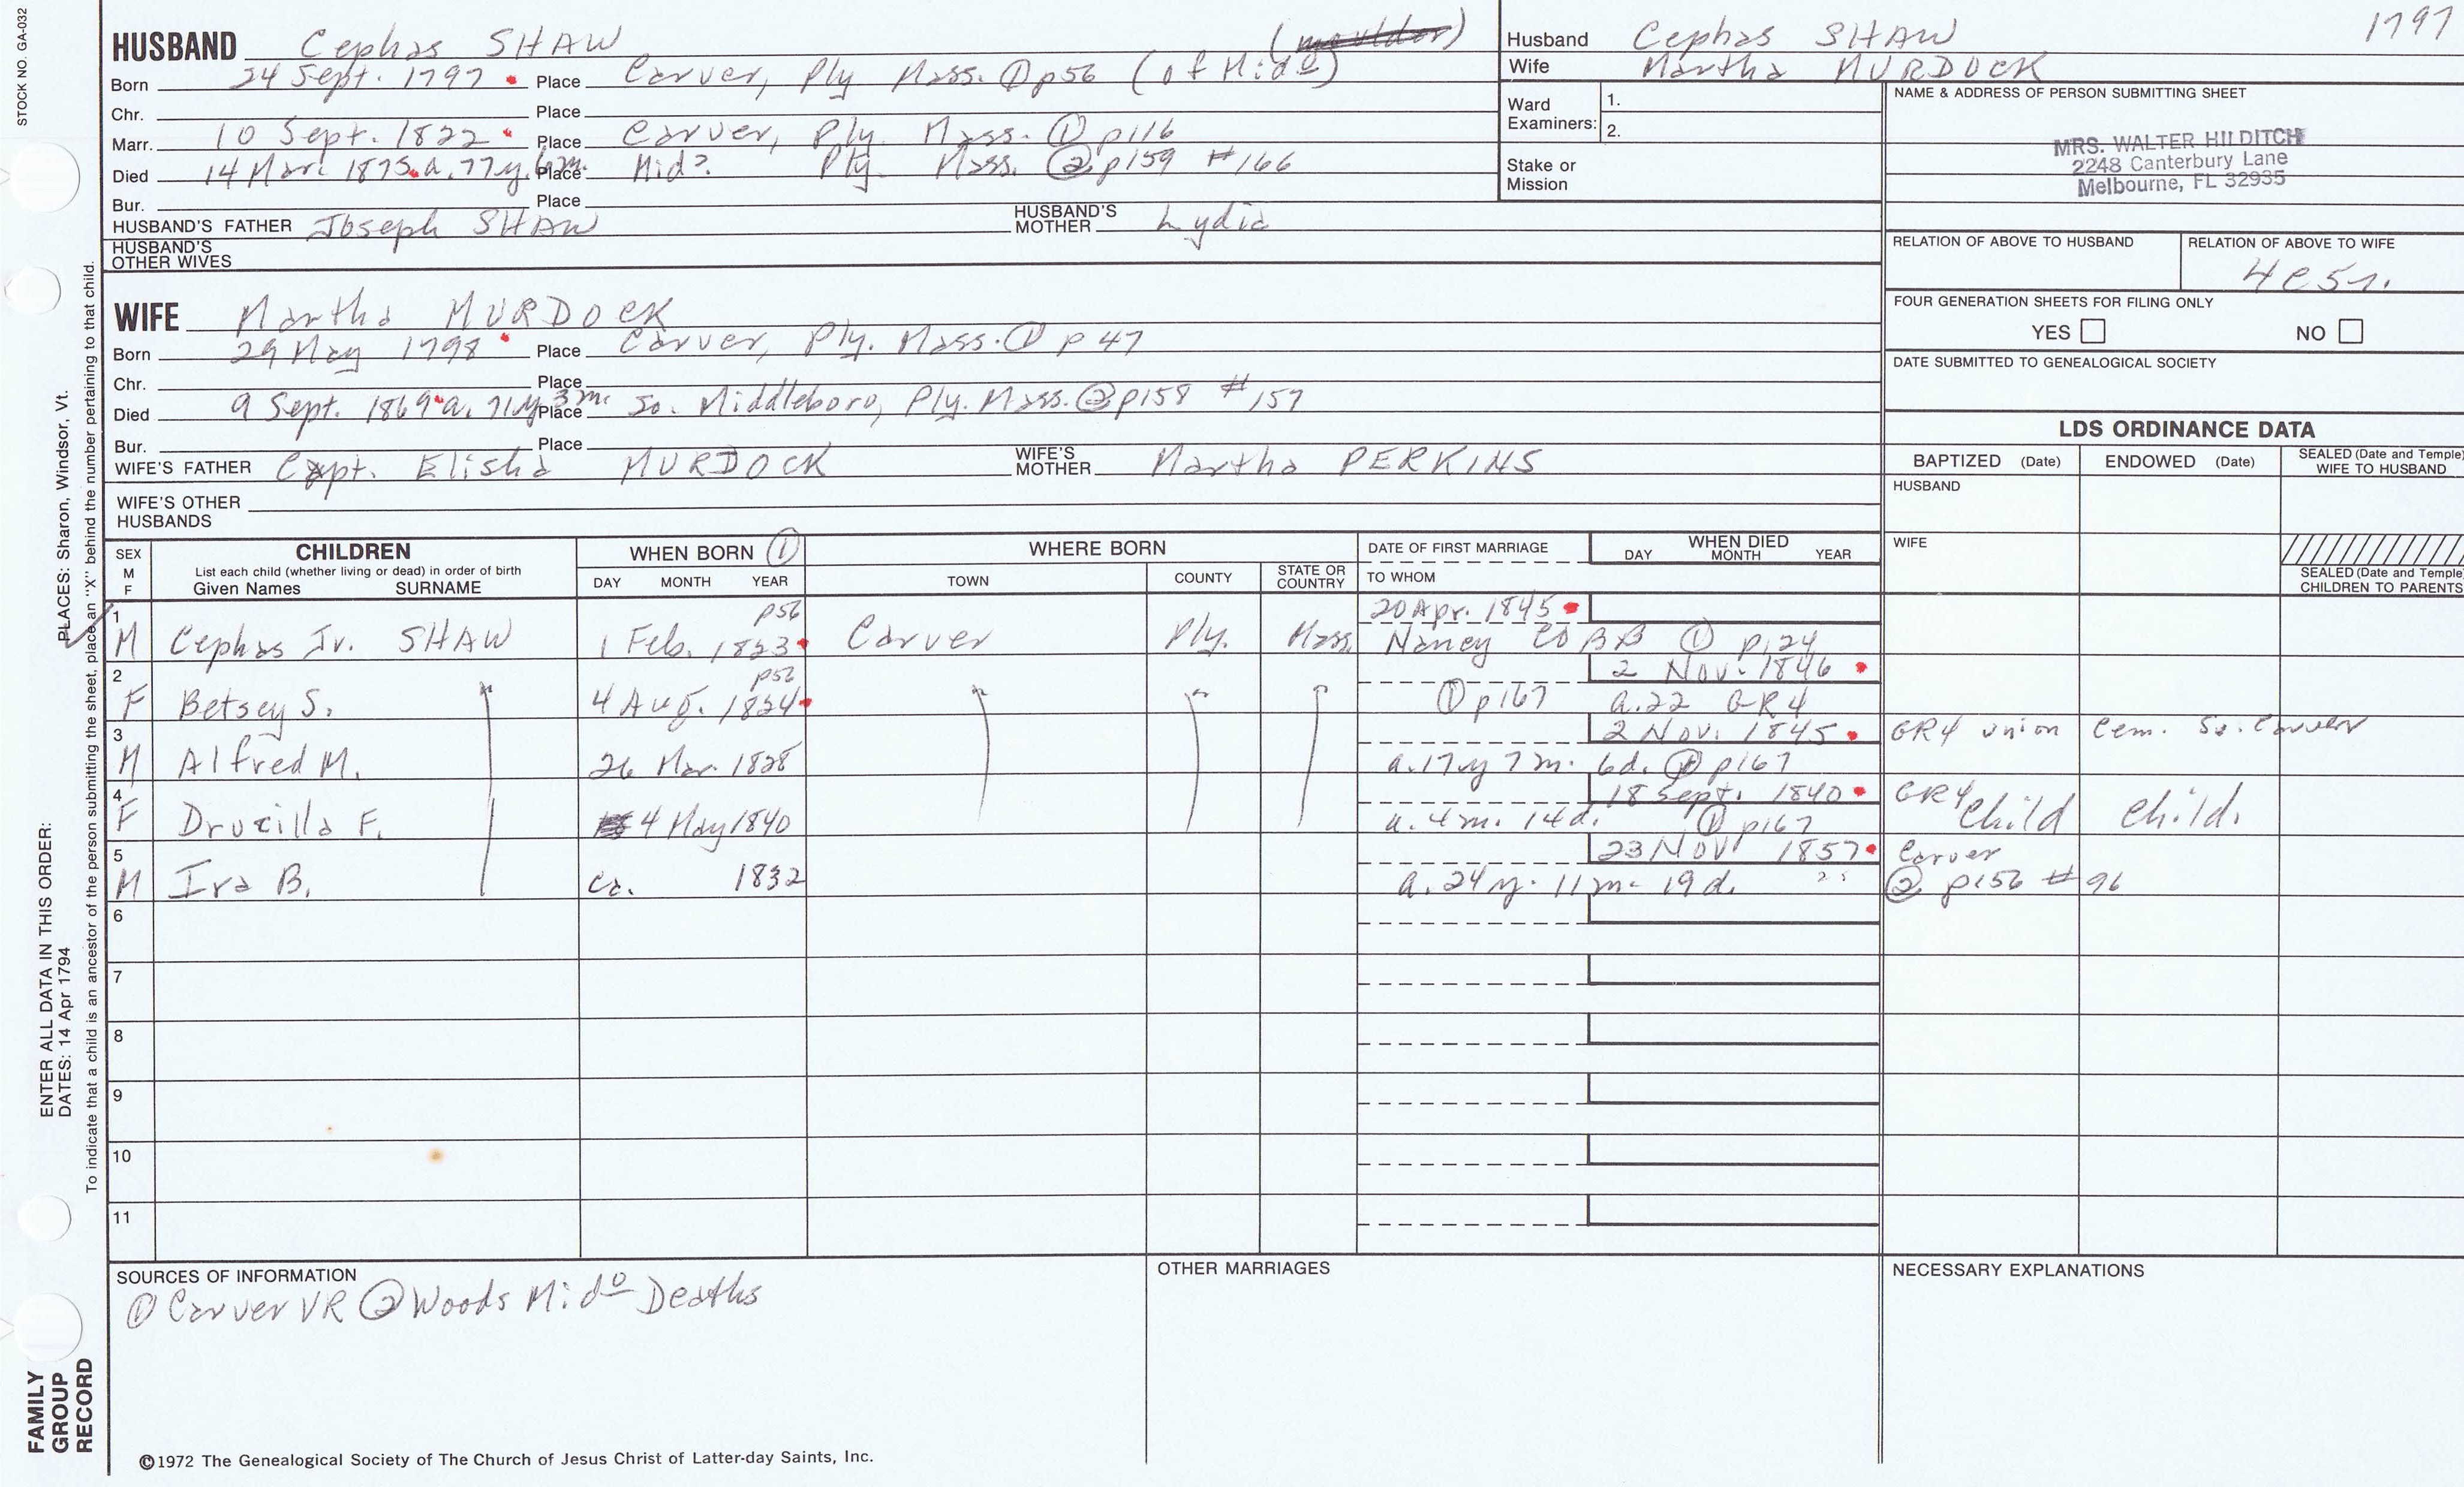 STOCK NO. GA-032
(mouldor)
HUSBAND Cephas SHAW
Born 24 Sept. 1797 Place Carver, Ply Mass. ① p56 (of Mido)
Chr. Place
Marr. 10 Sept. 1822 Place Carver, Ply. Mass. ① p116
Died 14 Mar. 1875 a. 77y. 6m. Place Mido. Ply. Mass. ② p159 #166
Bur. Place
HUSBAND'S FATHER Joseph SHAW HUSBAND'S MOTHER Lydia
HUSBAND'S OTHER WIVES
WIFE Martha MURDOCK
Born 29 May 1798 Place Carver, Ply. Mass. ① p47
Chr. Place
Died 9 Sept. 1869 a. 71y 3m. Place So. Middleboro, Ply. Mass. ② p158 #157
Bur. Place
WIFE'S FATHER Capt. Elisha MURDOCK WIFE'S MOTHER Martha PERKINS
WIFE'S OTHER HUSBANDS
1797
Husband Cephas SHAW
Wife Martha MURDOCK
Ward Examiners: 1.
2.
Stake or Mission
NAME & ADDRESS OF PERSON SUBMITTING SHEET
MRS. WALTER HILDITCH
2248 Canterbury Lane
Melbourne, FL 32935
RELATION OF ABOVE TO HUSBAND RELATION OF ABOVE TO WIFE
4c5r.
FOUR GENERATION SHEETS FOR FILING ONLY
YES NO
DATE SUBMITTED TO GENEALOGICAL SOCIETY
LDS ORDINANCE DATA
BAPTIZED (Date) ENDOWED (Date) SEALED (Date and Temple) WIFE TO HUSBAND
HUSBAND
WIFE
SEALED (Date and Temple) CHILDREN TO PARENTS
SEX M F CHILDREN WHEN BORN ① WHERE BORN DATE OF FIRST MARRIAGE WHEN DIED
List each child (whether living or dead) in order of birth
Given Names SURNAME DAY MONTH YEAR TOWN COUNTY STATE OR COUNTRY TO WHOM DAY MONTH YEAR
1 p56 20 Apr. 1845
M Cephas Jr. SHAW 1 Feb. 1823 Carver Ply. Mass. Nancy COBB ① p.124
2 p56 2 Nov. 1846
F Betsey S. 4 Aug. 1824 ① p167 a.22 GR4
3 2 Nov. 1845 GR4 Union Cem. So. Carver
M Alfred M. 26 Mar. 1828 a.17y 7m. 6d. ① p167
4 18 Sept. 1840 GR4 Child Child.
F Drucilla F. 4 May 1840 a. 4m. 14d. ① p167
5 23 Nov 1857 Carver
M Ira B. ca. 1832 a. 24y. 11m. 19d. ② p156 #96
6
7
8
9
10
11
SOURCES OF INFORMATION OTHER MARRIAGES NECESSARY EXPLANATIONS
① Carver VR ② Woods Mido Deaths
©1972 The Genealogical Society of The Church of Jesus Christ of Latter-day Saints, Inc.
ENTER ALL DATA IN THIS ORDER:
PLACES: Sharon, Windsor, Vt.
DATES: 14 Apr 1794
To indicate that a child is an ancestor of the person submitting the sheet, place an "X" behind the number pertaining to that child.
FAMILY
GROUP
RECORD